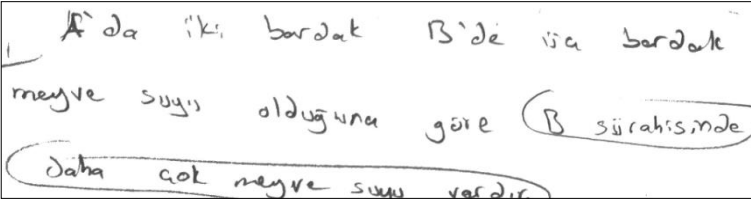 A'da iki bardak B'de üç bardak
meyve suyu olduğuna göre B sürahisinde
daha çok meyve suyu vardır.